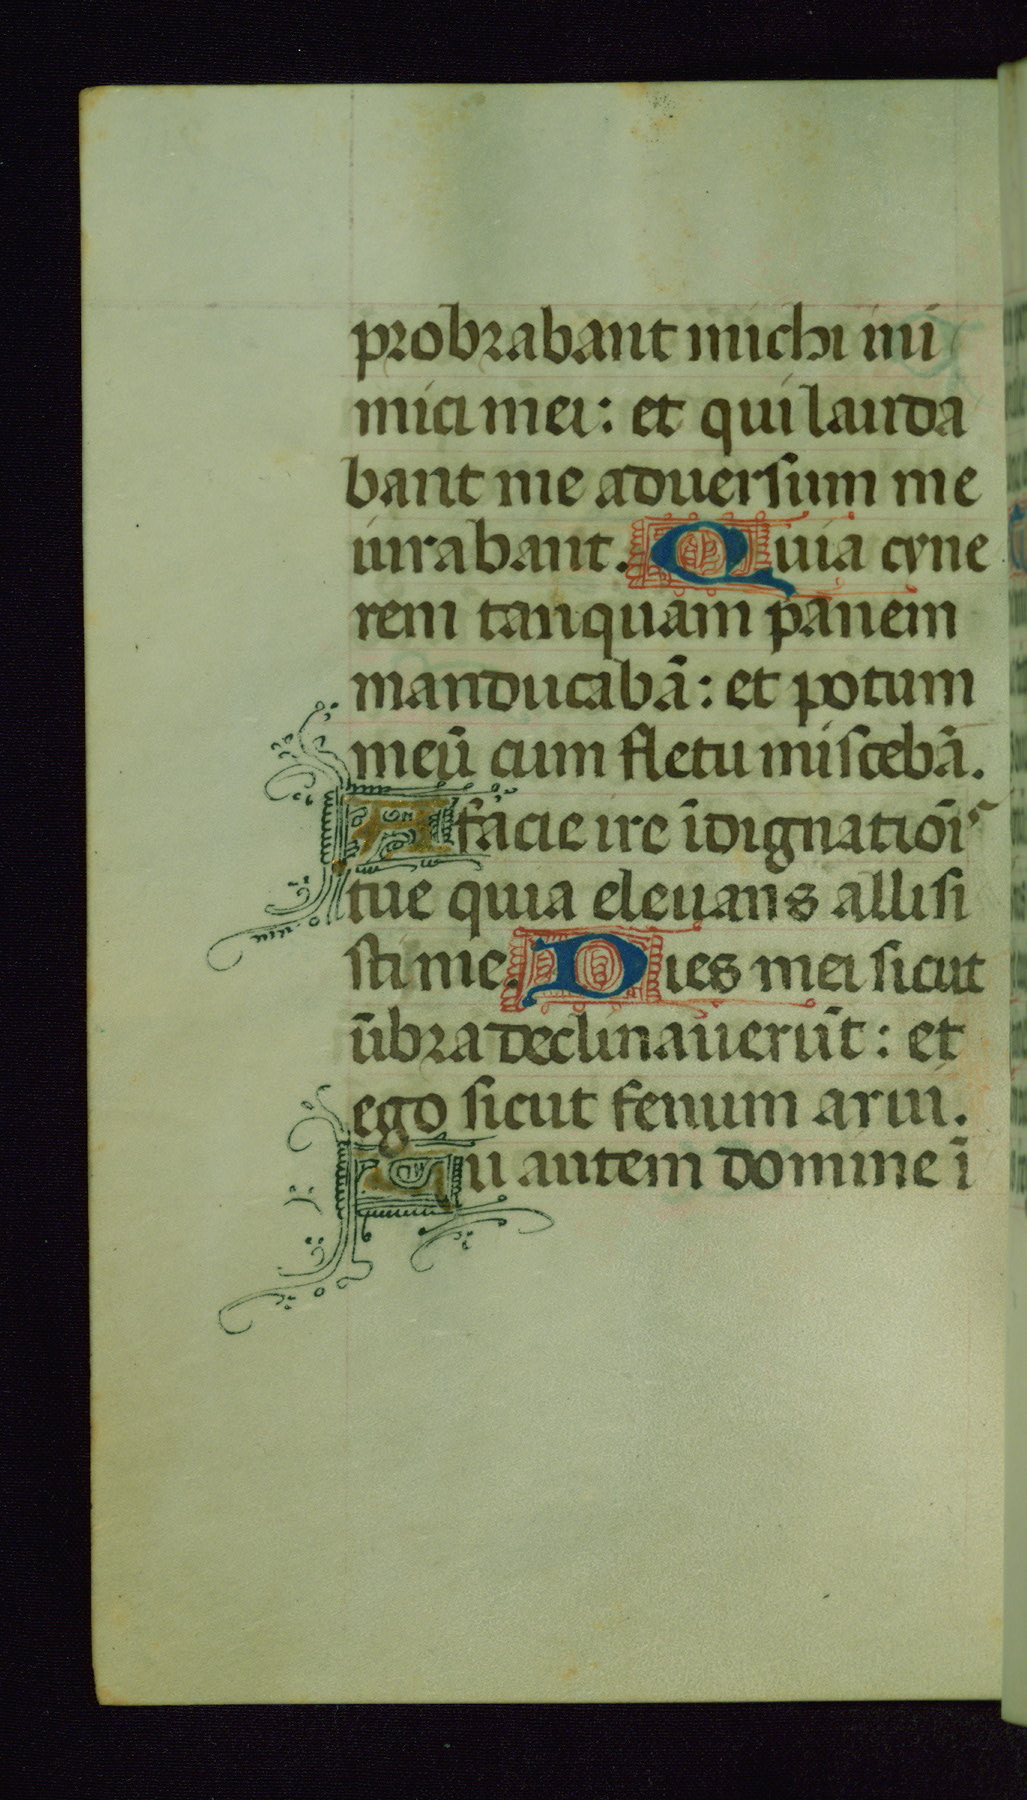 probrabant michi ini
mici mei: et qui lauda
bant me aduersum me
iurabant. Quia cyne
rem tanquam panem
manducabã: et potum
meũ cum fletu miscebã.
A facie ire ĩdignatiõis
tue quia eleuans allisi
sti me. Dies mei sicut
ũbra declinauerũt: et
ego sicut fenum arui.
Tu autem domine ĩ